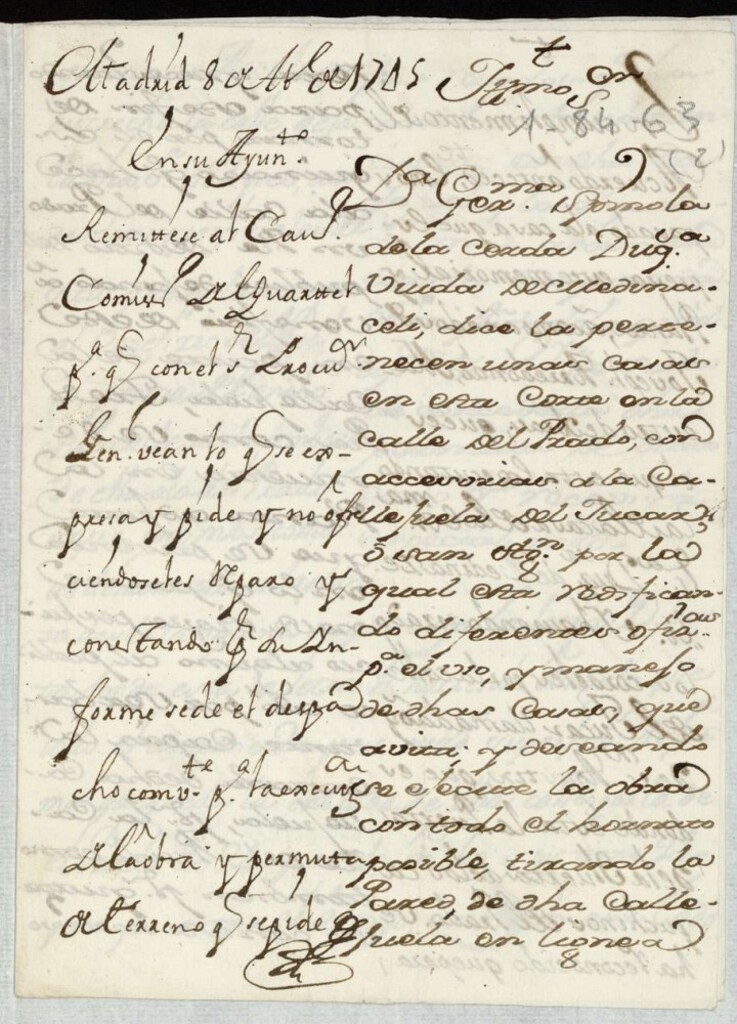 Madrid 8 de Ab.l de 1715
En su Ayun.te
Remittese al Cav.o
Comiss.o del Quarttel
p.a q.e con el s.r Procu.dr
Gen. vean lo q.e se ex-
presa y pide y no ofre
ciendoseles Reparo y
constando p.r su In-
forme se de el despa
cho comv.te p.a la execuz.on
de la obra y permuta
de terreno q.e se pide
Illmo S.or
1-84-63
(2)
D.a Ger.ma espinola
de la cerda Duq.sa
Viuda de Medina-
celi, dice la perte-
necen unas casas
en esta Corte en la
calle del Prado, con
accesorias a la Ca-
llejuela del Jucar,
ô san Ag.n por la
qual esta redifican-
do diferentes ofiz.as
p.a el uso, y manejo
de dhas Casas, que
avita; y deseando
se ejecute la obra
con todo el hornato
posible, tirando la
Pared, de dha Calle-
juela en linea